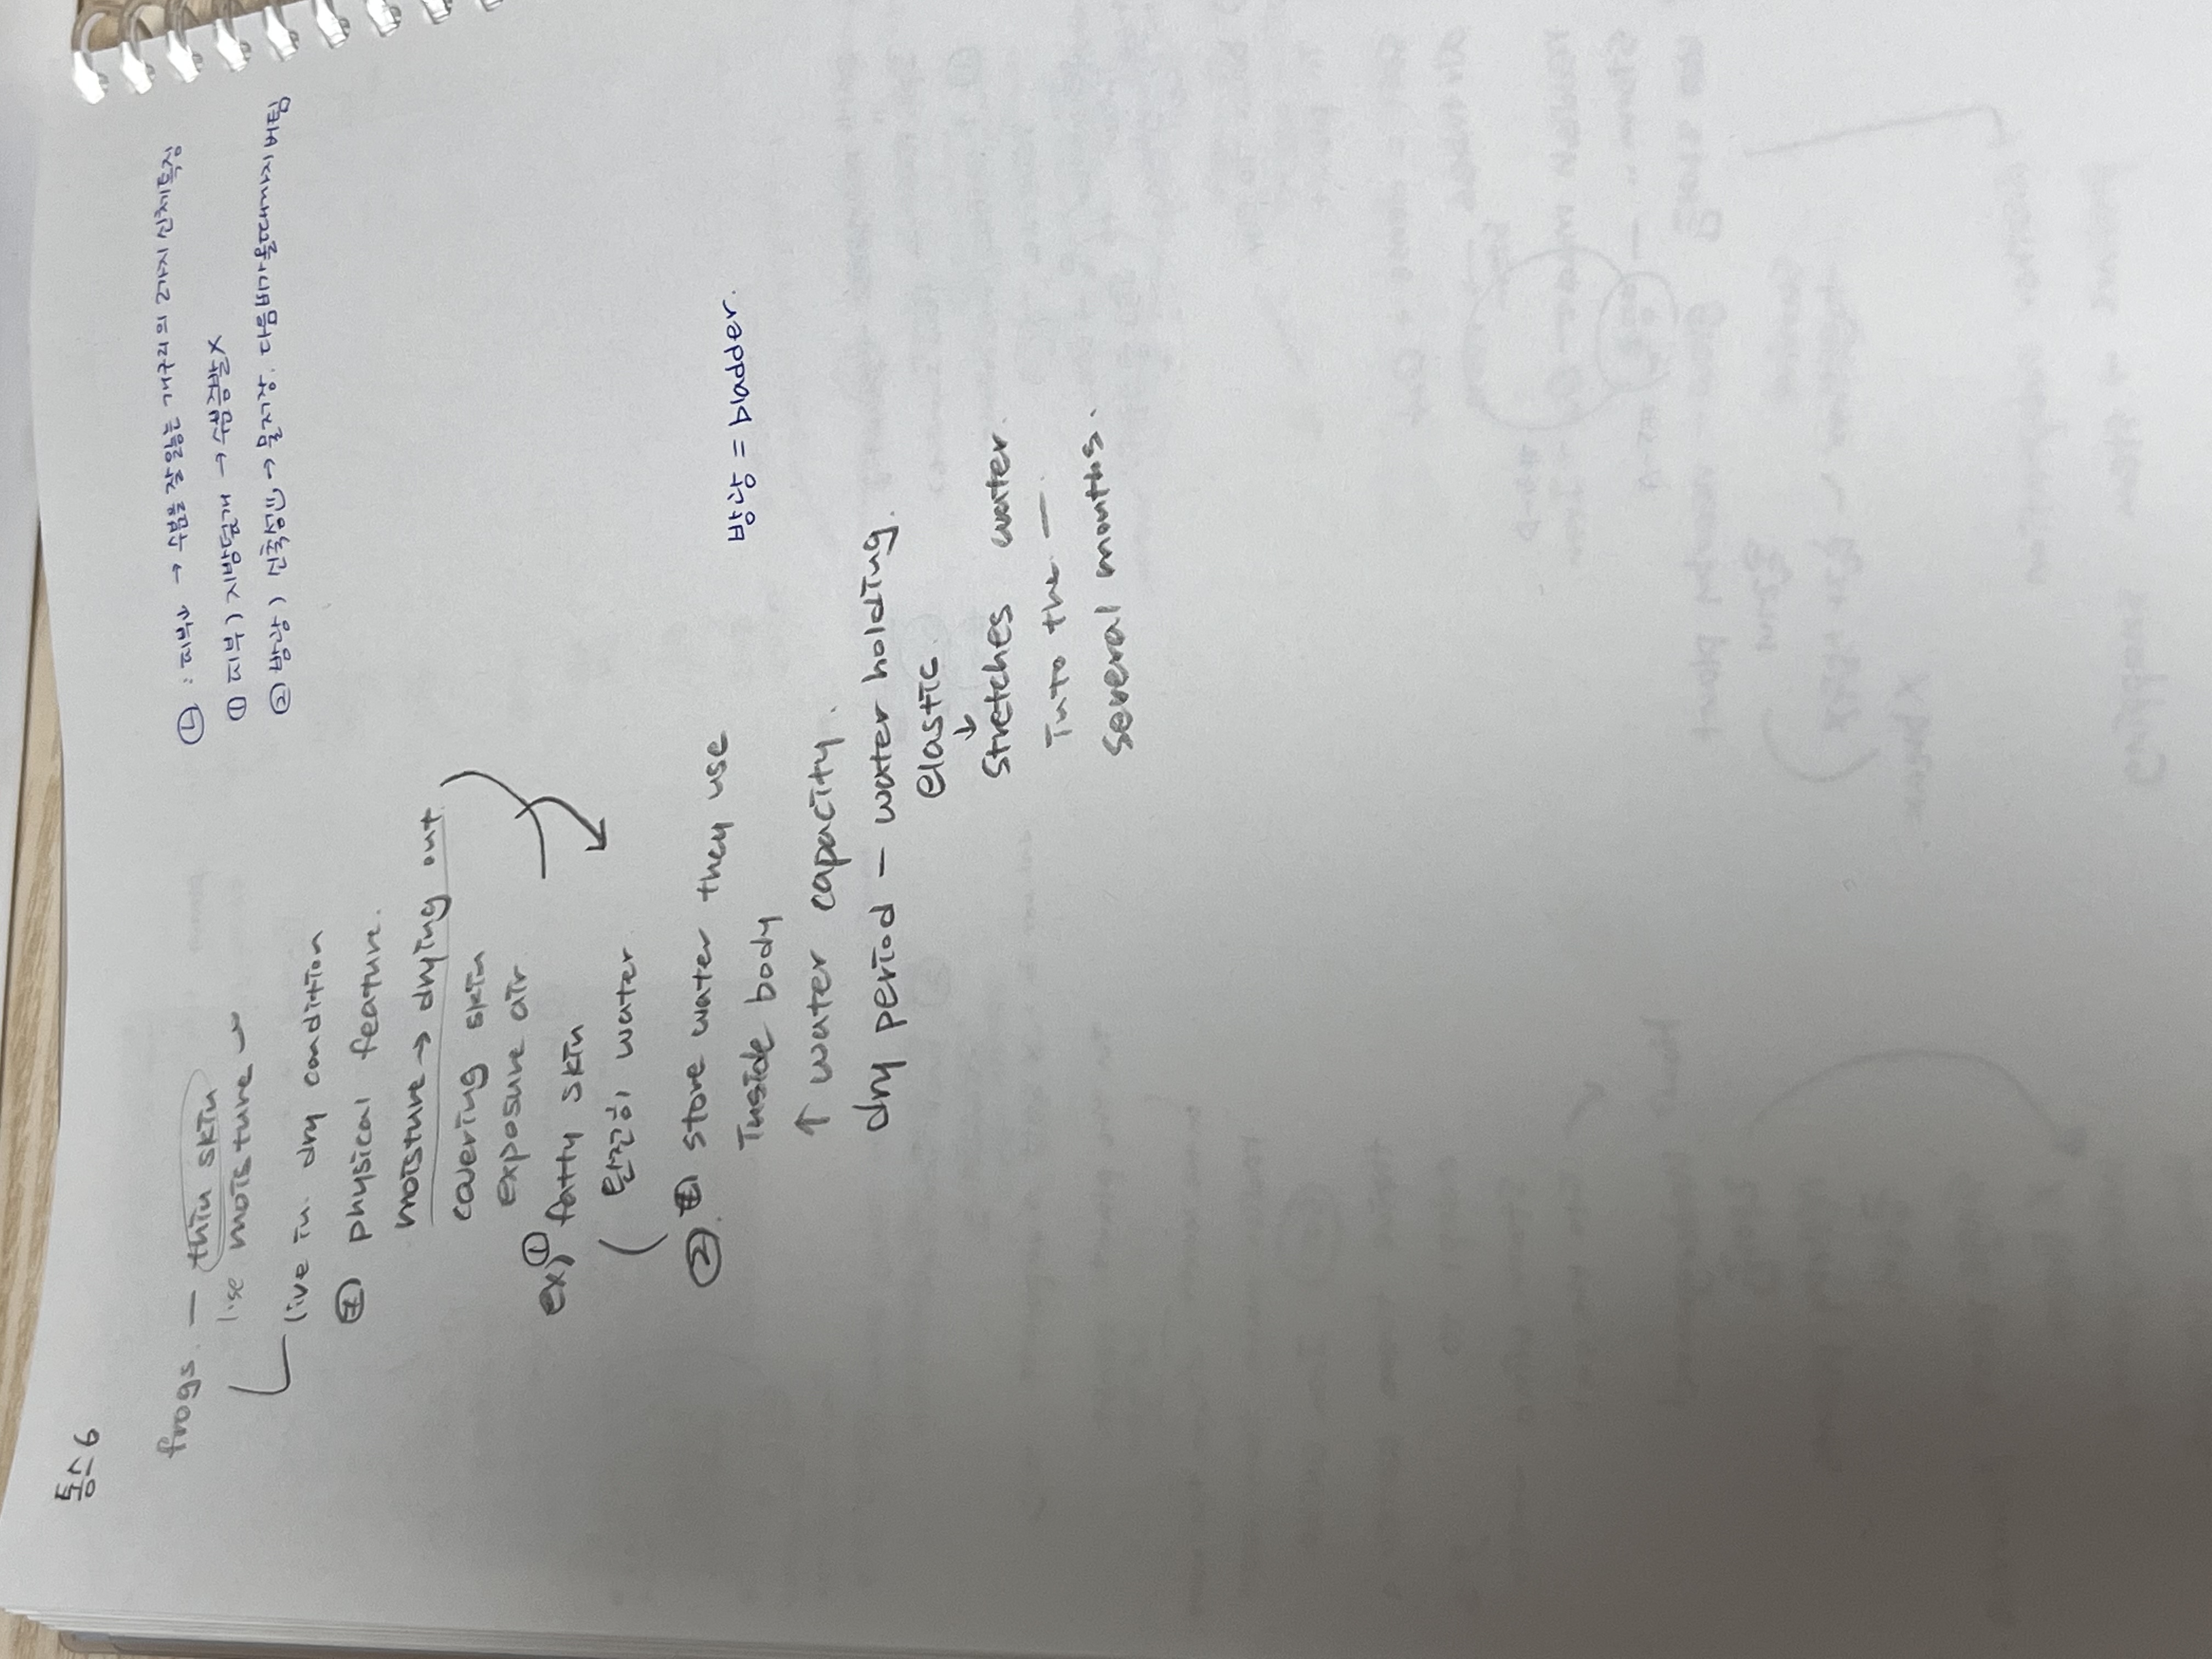 통스 6
frogs. — thin skin
lise moisture
live in dry condition
㊕ physical feature.
moisture → drying out
covering skin
exposure air
ex) ① fatty skin
( 완전히 water
② ㊕ store water they use
inside body
↑ water capacity.
dry period — water holding.
elastic
↓
stretches water.
into the —
several months.
㉠ : 피부 ↓ → 수분을 잘 잃는 개구리의 2가지 신체특징
① 피부 ( 지방덮개 → 수분증발 X
② 방광 ( 신축적인 → 물 저장.
방광 = bladder.